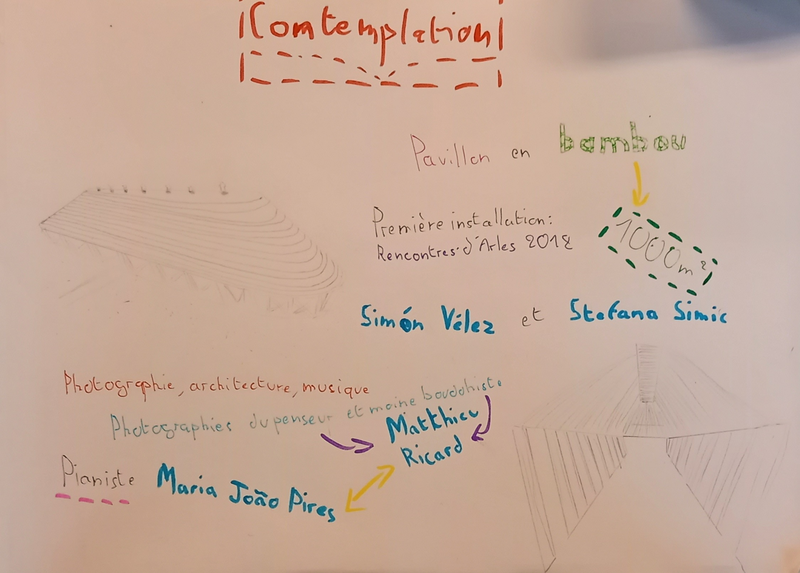 Contemplation
Pavillon en bambou
Première installation:
Rencontres d'Arles 2018
1000m²
Simón Vélez et Stefana Simic
Photographie, architecture, musique
Photographies du penseur et moine bouddhiste
Matthieu
Ricard
Pianiste Maria João Pires